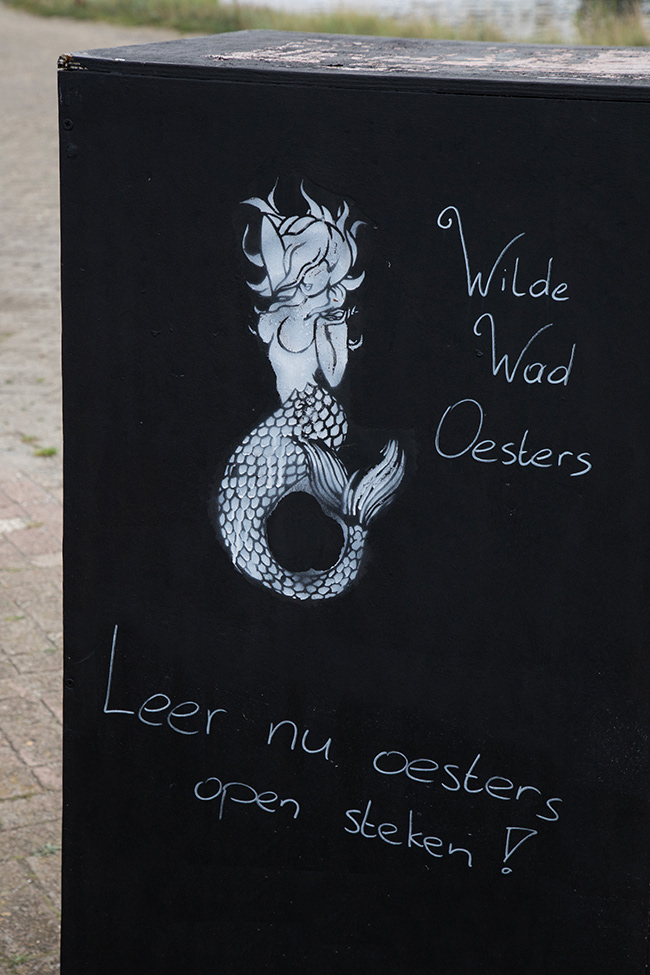 Wilde
Wad
Oesters
Leer nu oesters
open steken!